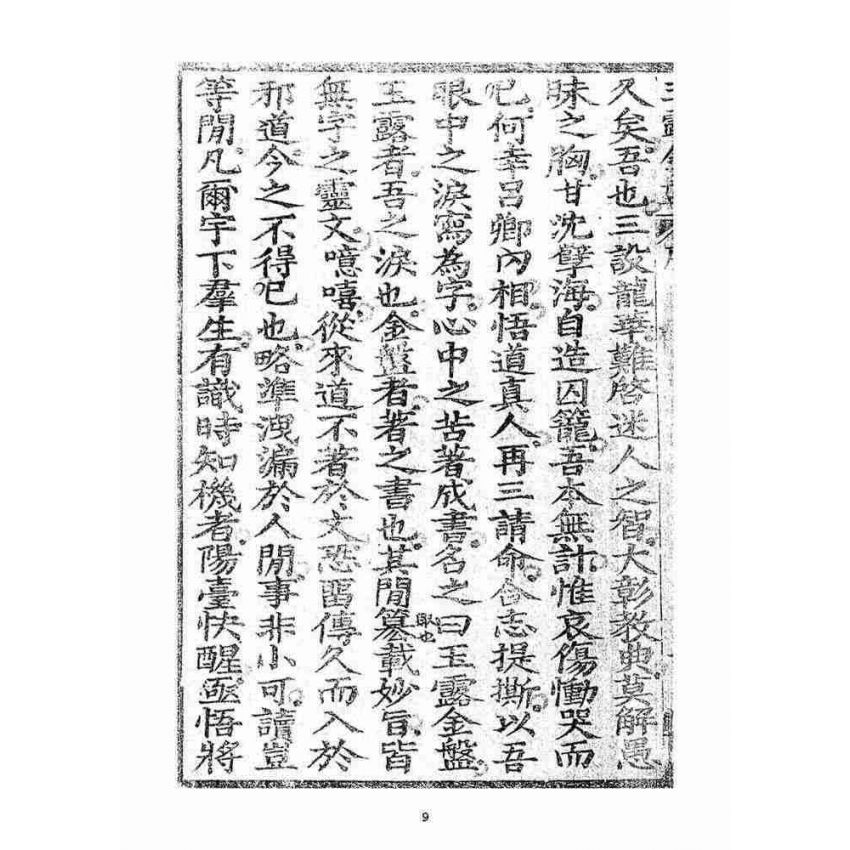 久矣吾也三設龍華難啓迷人之智大彰教典莫解愚
昧之胸甘沈孽海自造囚籠吾本無計惟哀傷慟哭而
已何幸呂卿內相悟道真人再三請命合志提撕以吾
眼中之淚寫為字心中之苦著成書名之曰玉露金盤
玉露者吾之淚也金盤者著之書也其閒纂載妙旨皆
無字之靈文噫嘻從來道不著於文恐畱傳久而入於
邪道今之不得已也略準洩漏於人閒事非小可讀豈
等閒凡爾宇下羣生有識時知機者陽臺快醒亟悟將
9